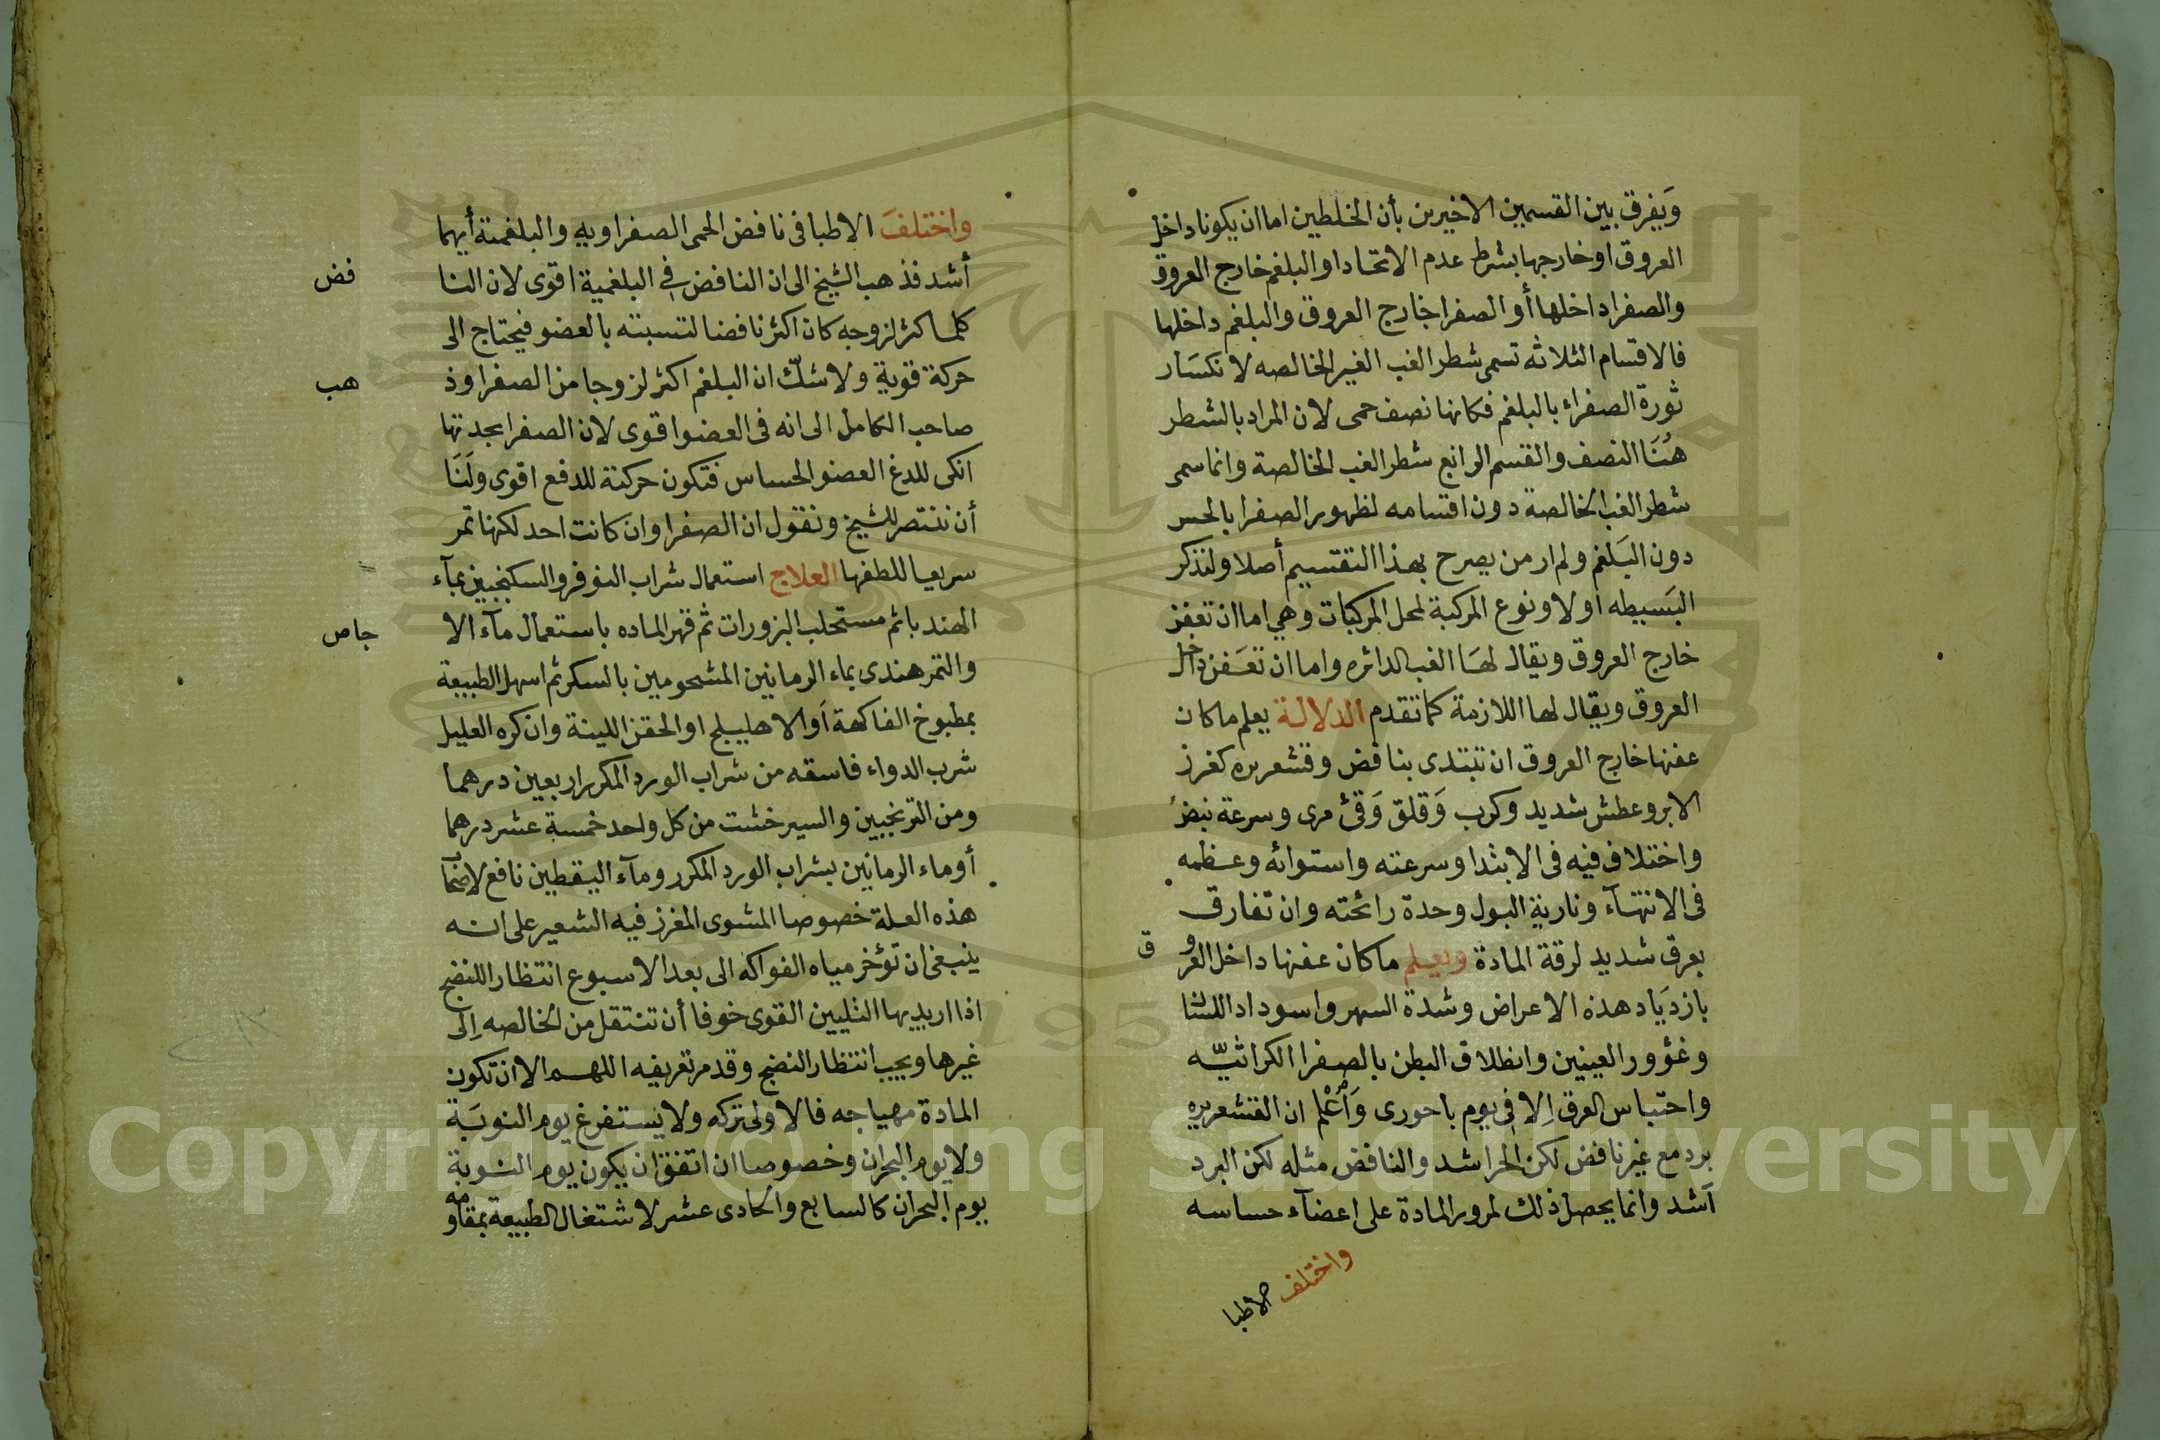 وَيفرق بين القسمين الاخيرين بأن الخلطين اما ان يكونا داخل
العروق او خارجها بشرط عدم الاتحاد او البلغم خارج العروق
والصفرا داخلها أو الصفرا خارج العروق والبلغم داخلها
فالاقسام الثلاثه تسمى شطر الغب الغير الخالصه لانكسَار
ثورة الصفراء بالبلغم فكانها نصف حمى لان المراد بالشطر
هُنَا النصف والقسم الرابع شطر الغب الخالصة وانما سمى
شطر الغب الخالصة دون اقسامه لظهور الصفرا بالحس
دون البَلغم ولم ار من يصرح بهذا التقسيم أصلا ولنذكر
البَسيطه اولا ونوع المركبة لمحل المركبات وهي اما ان تعفن
خارج العروق ويقال لهَا الغب الدائره واما ان تعَفن داخل
العروق ويقال لها اللازمة كما تقدم الدلالة يعلم ما كان
عفنها خارج العروق ان تبتدى بنافض وقشعريره كغرز
الابر وعطش شديد وكرب وَقلق وَقئ مرى وسرعة نبض
واختلاف فيه فى الابتدا وسرعته واستوائه وعظمه
فى الانتهآء ونارية البول وحدة رائحته وان تفارق
بعرق شديد لرقة المادة ويعلم ما كان عفنها داخل العرو
ق
بازديَاد هذه الاعراض وشدة السهر واسوداد اللسان
وغؤور العينين وانطلاق البطن بالصفرا الكراثيّه
واحتباس العرق اِلا فى يوم باحورى وَاعْلم ان القشعريره
برد مع غير نافض لكن الحر اشد والنافض مثله لكن البرد
اَشد وانما يحصل ذلك لمرور المادة على اعضآء حساسه
واختلف الاطبا
واختلفَ الاطبا فى نافض الحمى الصفراويه والبلغمية أيهما
أشد فذهب الشيخ الى ان النافض فى البلغمية اقوى لان النا
فض
كلما كثر لزوجه كان اكثر نافضا لتسبته بالعضو فيحتاج الى
حركة قوية ولا شكّ ان البلغم اكثر لزوجا من الصفرا وذ
هب
صاحب الكامل الى انه فى العضو اقوى لان الصفرا بحدتها
انكى للدغ العضو الحساس فتكون حركتة للدفع اقوى ولَنَا
أن ننتصر للشيخ ونقول ان الصفرا وان كانت احد لكنها تمر
سريعا للطفها العلاج استعمال شراب النوفر والسكنجبين بمآء
الهندبا ثم مستحلب البزورات ثم قهر الماده باستعمال مآء الا
جاص
والتمر هندى بماء الرمانين المشحومين بالسكر ثم اسهل الطبيعة
بمطبوخ الفاكهة اَو الاهليلج او الحقن اللينة وان كره العليل
شرب الدواء فاسقه من شراب الورد المكرر اربعين درهما
ومن الترنجبين والسيرخشت من كل واحد خمسة عشر درهما
أو ماء الرمانين بشراب الورد المكرر ومآء اليقطين نافع لاصحآب
هذه العلة خصوصا المشوى المغرز فيه الشعير على انه
ينبغى ان تؤخر مياه الفواكه الى بعد الاسبوع انتظارا للنضج
اذا اريد بها التليين القوى خوفا أن تنتقل من الخالصه اِلى
غيرها ويجب انتظار النضج وقد مر تعريفه اللهم الا ان تكون
المادة مهياجه فالاولى تركه ولا يستفرغ يوم النوبَة
ولا يوم البحران وخصوصا ان اتفق ان يكون يوم النوبة
يوم البحران كالسابع والحادى عشر لاشتغال الطبيعة بمقاومه
Copyright © King Saud University